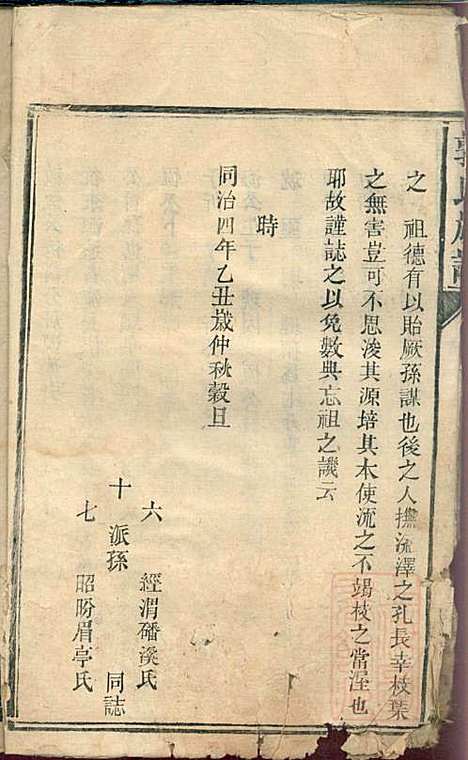 之　祖德有以貽厥孫謀也後之人撫流澤之孔長幸枝葉
之無害豈可不思浚其源培其本使流之不竭枝之當渥也
耶故謹誌之以免數典忘祖之譏云
時
同治四年乙丑歲仲秋穀旦
六　經渭磻溪氏
十　派孫　同誌
七　昭盼眉亭氏